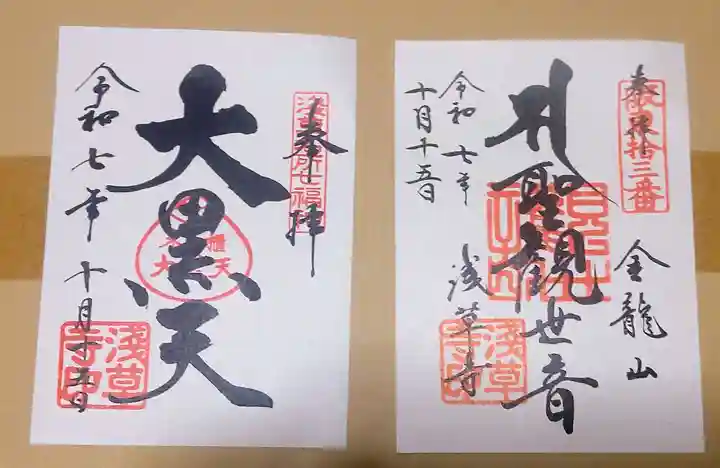 奉拝
浅草名所七福神
大黒天
令和七年十月十五日
浅草寺印
奉拝
坂東拾三番
金龍山
聖観世音
浅草寺
浅草寺印
令和七年
十月十五日